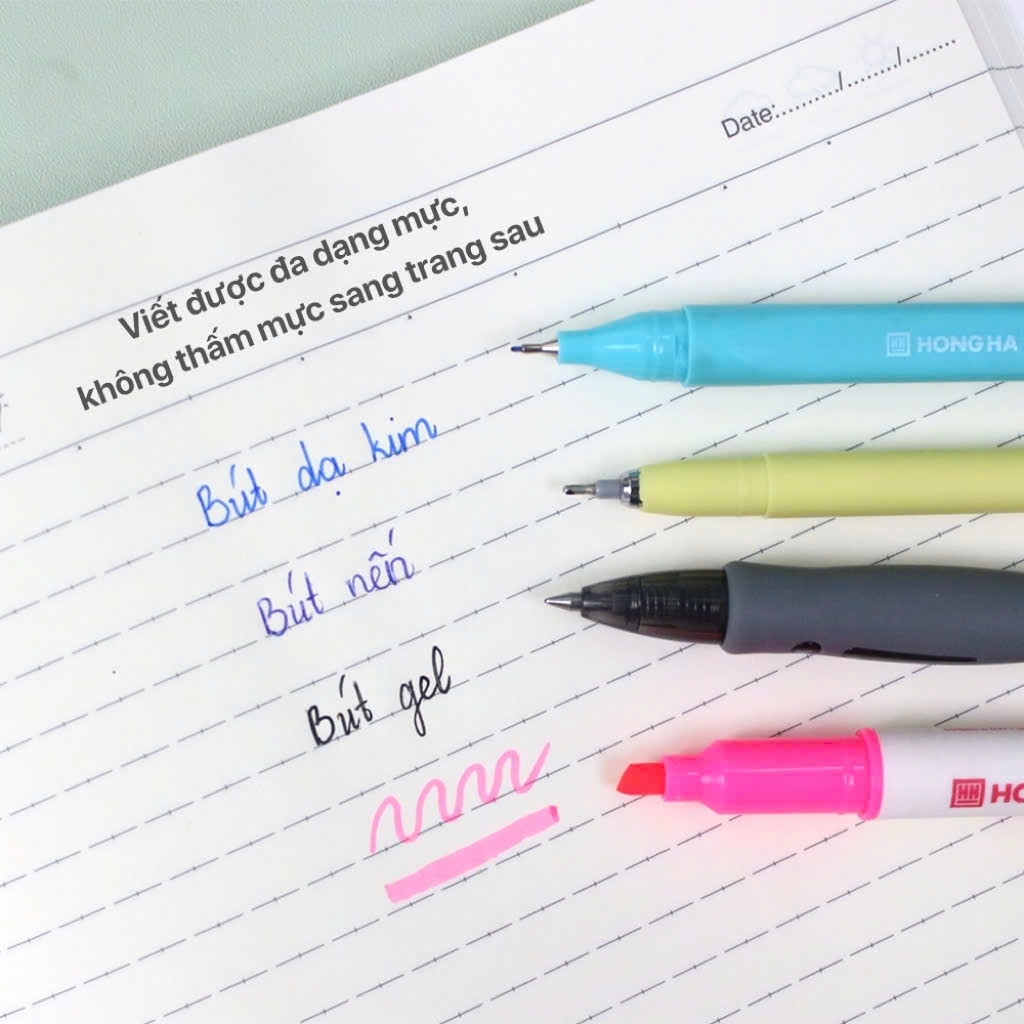 Date:........../........./.........
Viết được đa dạng mực,
không thấm mực sang trang sau
HONG HA
Bút dạ kim
Bút nến
Bút gel
HN HO